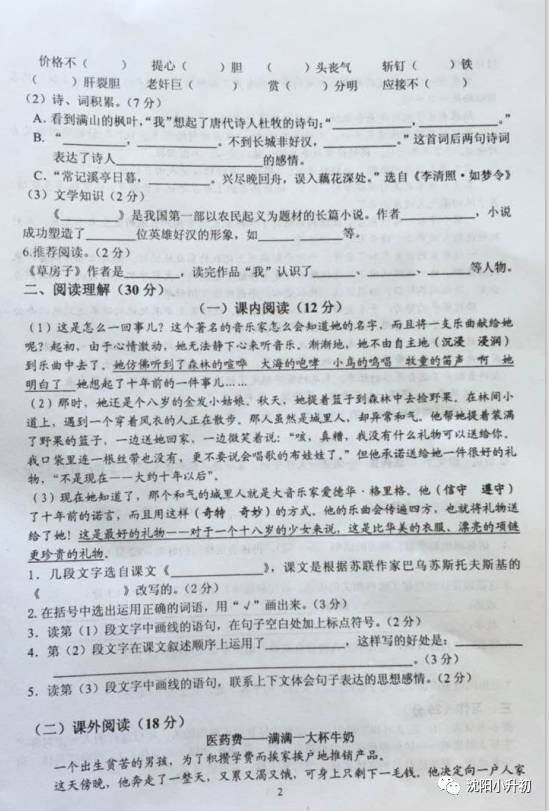 价格不（　　） 提心（　　）胆 （　　）头丧气 斩钉（　　）铁
（　　）肝裂胆 老奸巨（　　） 赏（　　）分明 应接不（　　）
（2）诗、词积累。（7分）
A. 看到满山的枫叶，“我”想起了唐代诗人杜牧的诗句：“________，________。”
B. “________，________。不到长城非好汉，________。”这首词后两句诗词
表达了诗人________的感情。
C. “常记溪亭日暮，________，兴尽晚回舟，误入藕花深处。”选自《李清照·如梦令》
（3）文学知识（2分）
《________》是我国第一部以农民起义为题材的长篇小说。作者________，小说
成功塑造了________位英雄好汉的形象，如________等。
6.推荐阅读。（2分）
《草房子》作者是________，读完作品“我”认识了________、________、________等人物。
二、阅读理解（30分）
（一）课内阅读（12分）
（1）这是怎么一回事儿？这个著名的音乐家怎么会知道她的名字，而且将一支乐曲献给她
呢？起初，由于心情激动，她无法静下心来听音乐，渐渐地，她不由自主地（沉浸 浸润）
到乐曲中去了，她仿佛听到了森林的喧哗 大海的咆哮 小鸟的鸣唱 牧童的笛声 啊 她
明白了 她想起了十年前的一件事儿……
（2）那时，她还是个八岁的金发小姑娘，秋天，她提着篮子到森林中去捡野果。在林间小
道上，遇到一个穿着风衣的人正在散步。那人虽然是城里人，却异常和气。他帮她提着装满
了野果的篮子，一边送她回家，一边微笑着说：“咳，真糟，我没有什么礼物可以送给你。
我口袋里连一根丝带也没有，更不要说会唱歌的布娃娃了。”但他承诺送给她一件很好的礼
物，“不是现在——大约十年以后”。
（3）现在她知道了，那个和气的城里人就是大音乐家爱德华·格里格。他（信守 遵守）
了十年前的诺言，而且用这样（奇特 奇妙）的方式。他的乐曲会传遍四方，也就将礼物送
给了她！这是最好的礼物——对于一个十八岁的少女来说，这是比华美的衣服、漂亮的项链
更珍贵的礼物。
1. 几段文字选自课文《________》，课文是根据苏联作家巴乌苏斯托夫斯基的
《________》改写的。（2分）
2. 在括号中选出运用正确的词语，用“√”画出来。（3分）
3. 读第（1）段文字中画线的语句，在句子空白处加上标点符号。（2分）
4. 第（2）段文字在课文叙述顺序上运用了________，这样写的好处是：________
________。（3分）
5. 读第（3）段文字中画线的语句，联系上下文体会句子表达的思想感情。（2分）
（二）课外阅读（18分）
医药费——满满一大杯牛奶
一个出生贫苦的男孩，为了积攒学费而挨家挨户地推销产品。
这天傍晚，他奔走了一整天，又累又渴又饿，可身上只剩下一毛钱。他决定向一户人家
2
沈阳小升初